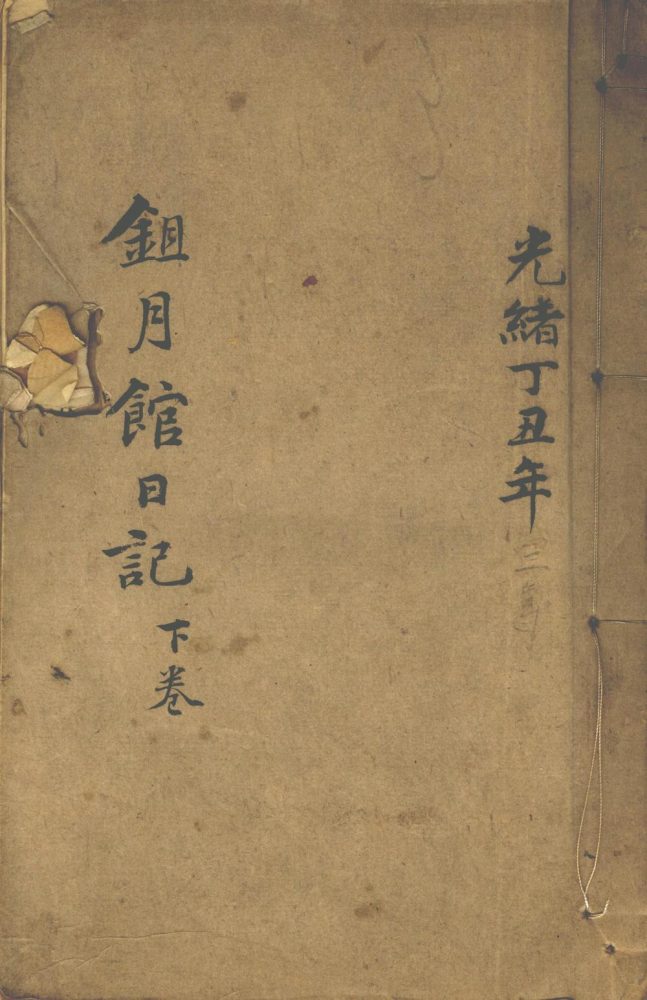 光緒丁丑年三
鉏月館日記
下卷